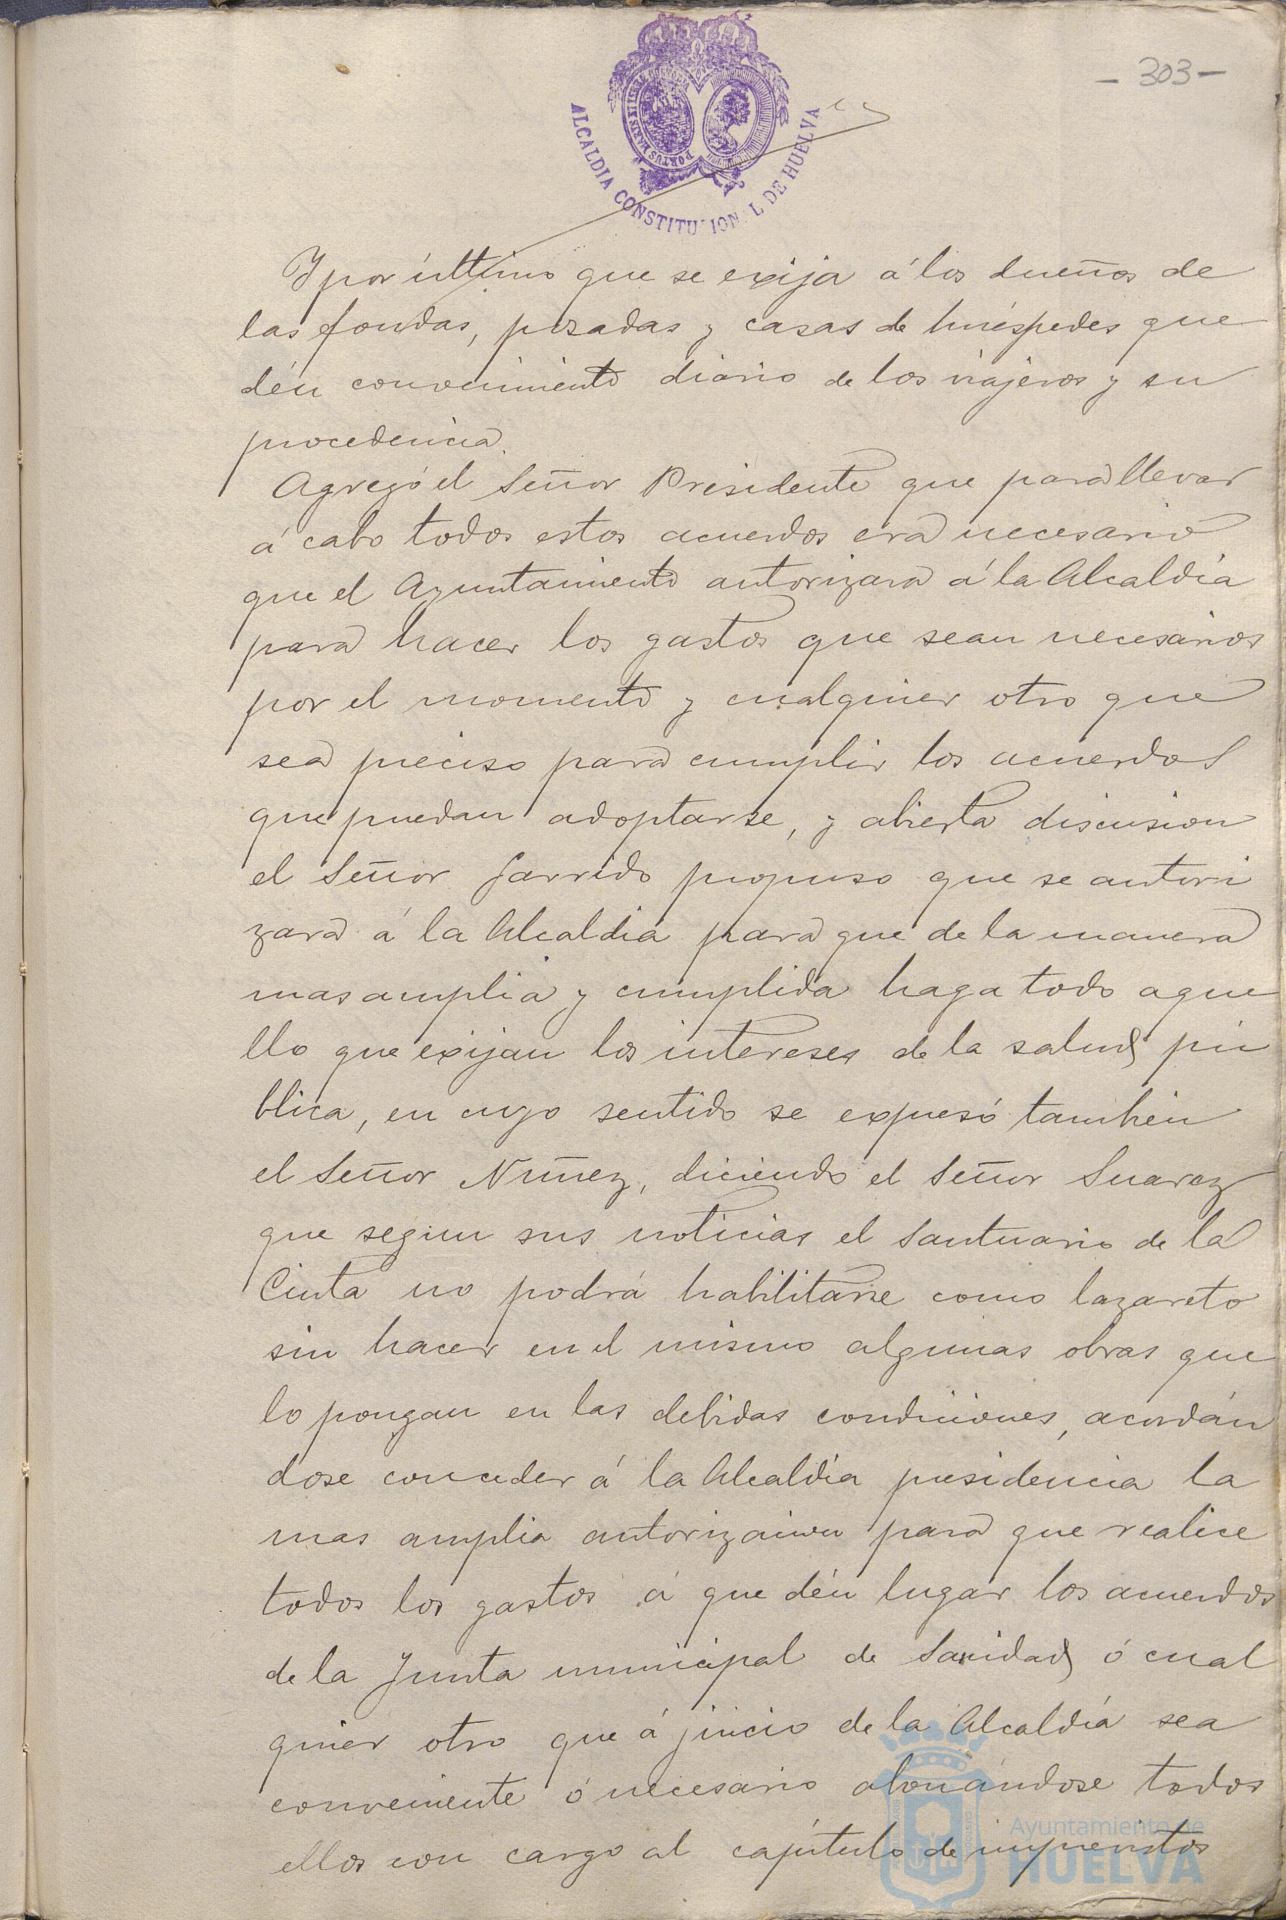 - 303 -
ALCALDIA CONSTITUCIONAL DE HUELVA
Y por último que se exija á los dueños de
las fondas, posadas y casas de huéspedes que
dén conocimiento diario de los viajeros y su
procedencia.
Agregó el Señor Presidente que para llevar
á cabo todos estos acuerdos era necesario
que el Ayuntamiento autorizara á la Alcaldía
para hacer los gastos que sean necesarios
por el momento y cualquier otro que
sea preciso para cumplir los acuerdos
que puedan adoptarse, y abierta discusion
el Señor Garrido propuso que se autori
zara á la Alcaldia para que de la manera
mas amplia y cumplida haga todo aque
llo que exijan los intereses de la salud pú
blica, en cuyo sentido se expresó tambien
el Señor Nuñez, diciendo el Señor Suarez
que segun sus noticias el Santuario de la
Cinta no podrá habilitarse como lazareto
sin hacer en el mismo algunas obras que
lo pongan en las debidas condiciones, acordán
dose conceder á la Alcaldia presidencia la
mas amplia autorizacion para que realice
todos los gastos á que dén lugar los acuerdos
de la Junta municipal de Sanidad, ó cual
quier otro que á juicio de la Alcaldía sea
conveniente ó necesario abonándose todos
ellos con cargo al capítulo de imprevistos
Ayuntamiento de
HUELVA